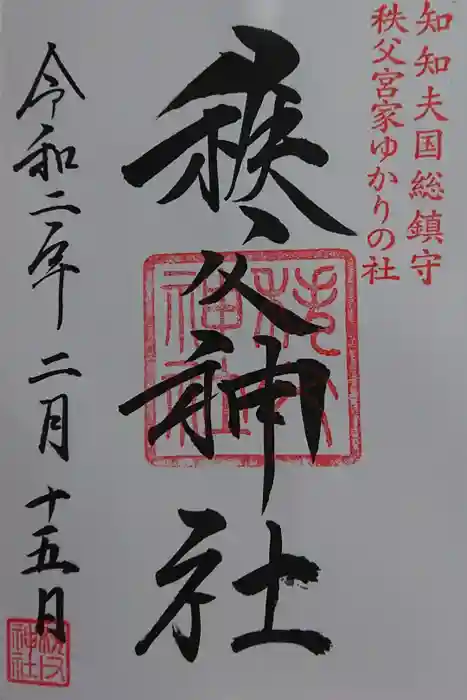 知知夫国総鎮守
秩父宮家ゆかりの社
秩父神社
令和二年 二月 十五日
秩父神社
秩父神社